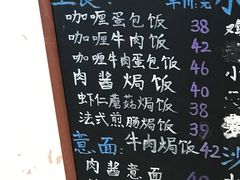 咖喱蛋包饭 38
咖喱牛肉饭 42
咖喱牛肉蛋包饭 46
肉酱焗饭 40
虾仁蘑菇焗饭 38
法式煎肠焗饭 39
意面: 牛肉焗饭 42
肉酱意面